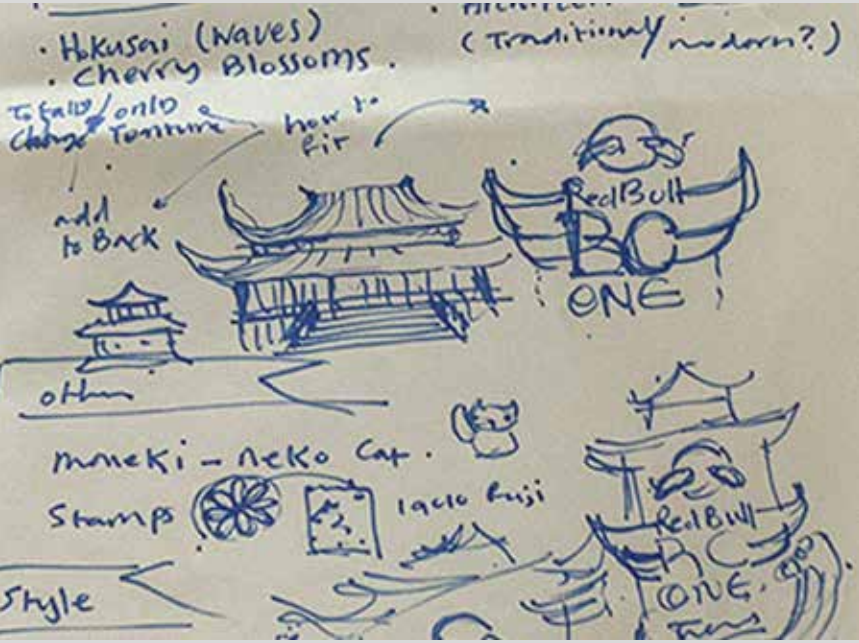 · Hokusai (waves)
· Cherry Blossoms.
(Traditional/modern?)
Totally/only
Change
how to
fit
add
to Back
Red Bull
BC
ONE
other
maneki-neko Cat.
Stamps
Style
Red Bull
BC
ONE